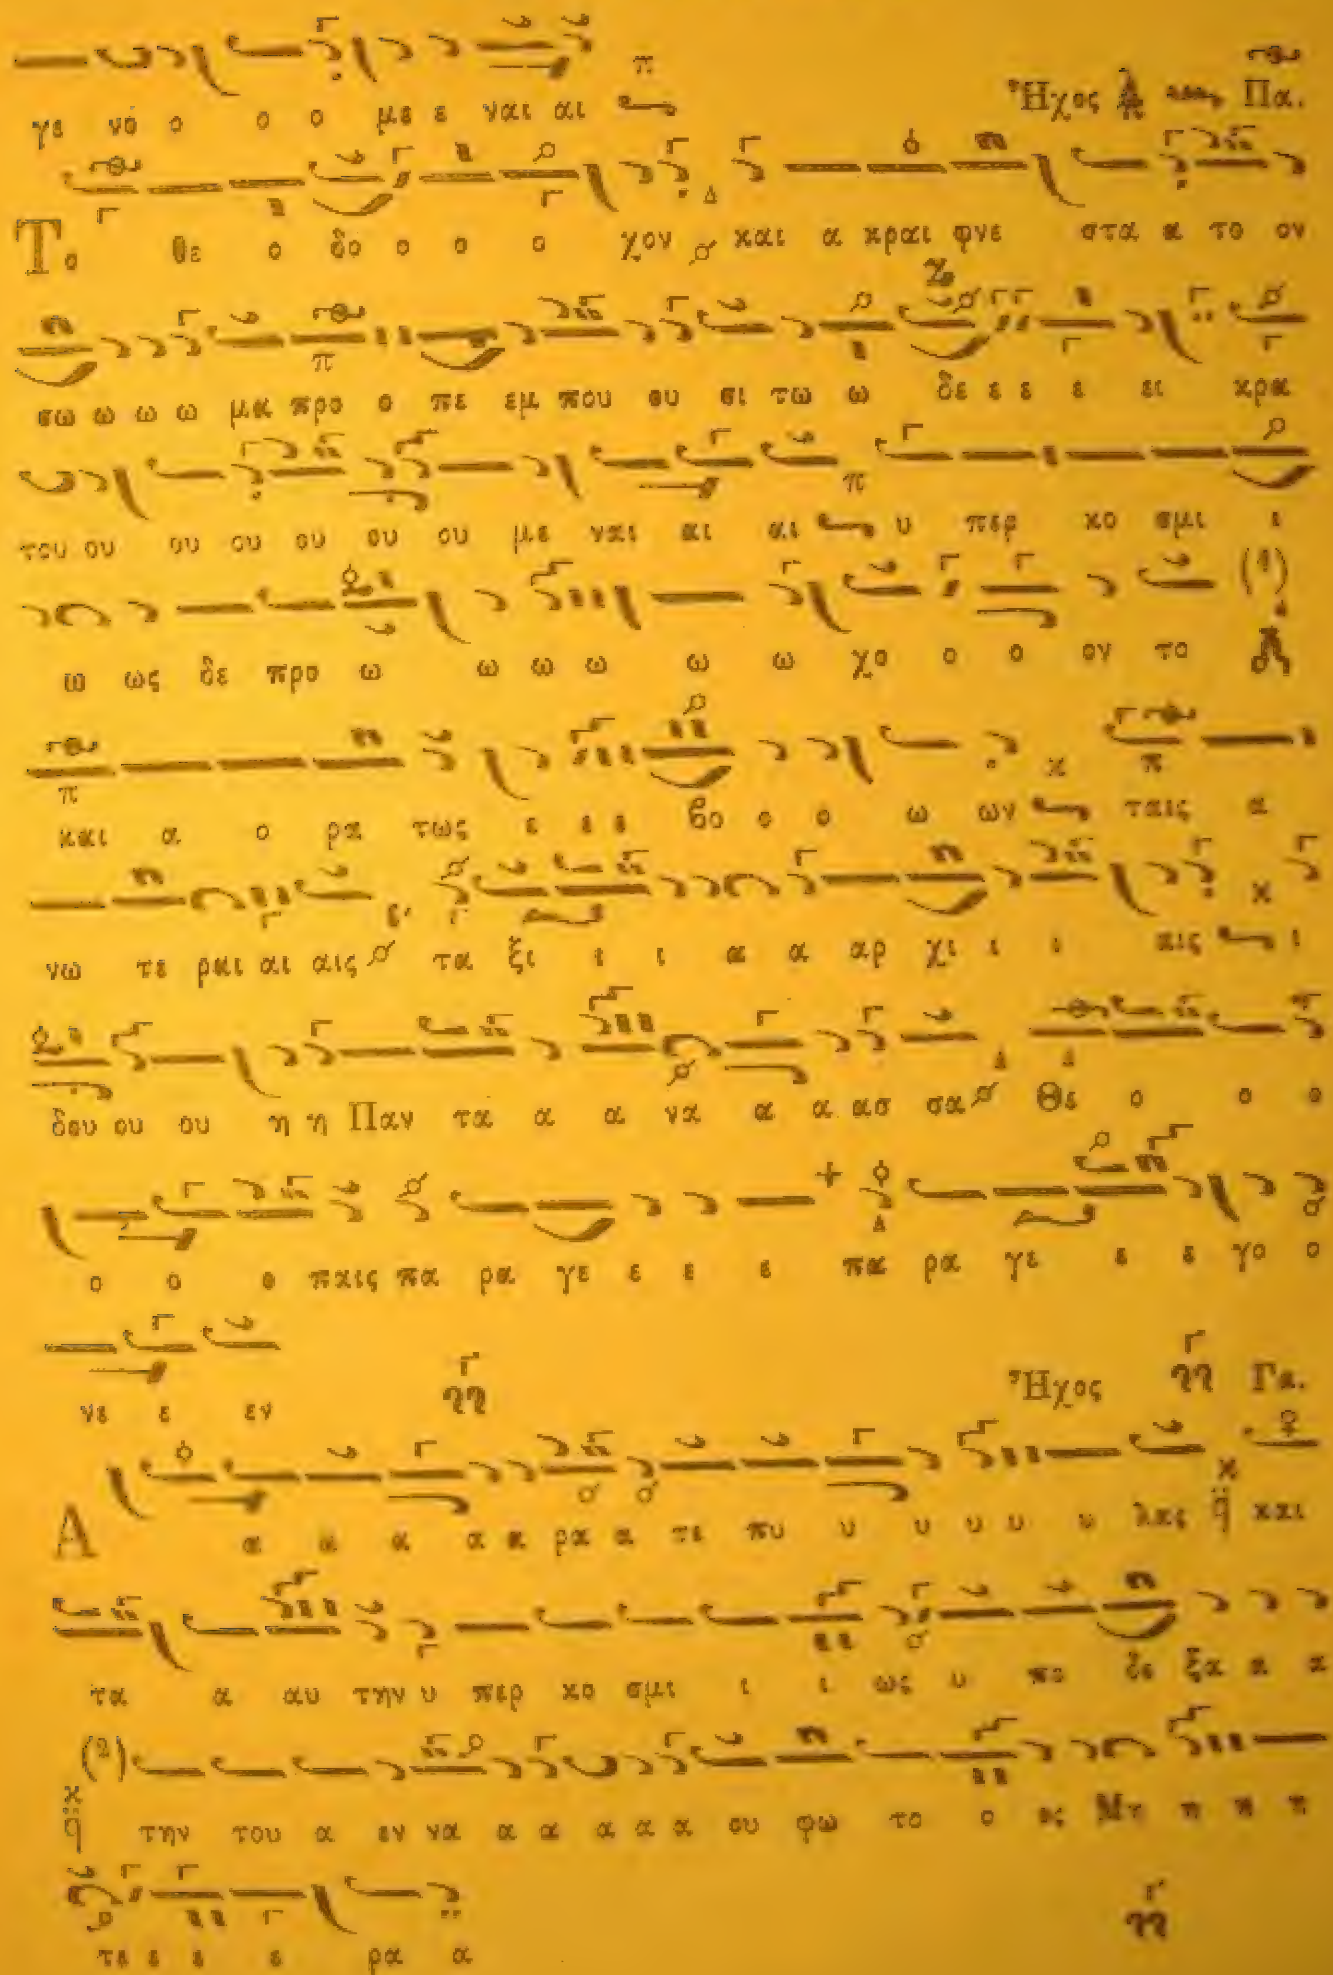 γε νό ο ο ο με ε ναι αι
Ἦχος Πα.
Το θε ο δο ο ο ο χον και α κραι φνε στα α το ον
σω ω ω ω μα προ ο πε εμ που ου σι τω ω δε ε ε ε ει κρα
του ου ου ου ου ου ου με ναι αι αι υ περ κο σμι ι
ω ως δε προ ω ω ω ω ω ω χο ο ο ον το (1)
και α ο ρα τως ε ε ε βο ο ο ω ων ταις α
νω τε ραι αι αις τα ξι ι ι α α αρ χι ι ι αις ι
δου ου ου η η Παν τα α α να α α ασ σα Θε ο ο ο
ο ο ο παις πα ρα γε ε ε ε πα ρα γε ε ε γο ο
νε ε εν
Ἦχος Γα.
Α α α α α α ρα α τε πυ υ υ υ υ υ λας και
τα α αυ την υ περ κο σμι ι ι ως υ πο δε ξα α α
(2) την του α εν να α α α α α ου φω το ο ος Μη η η η
τε ε ε ε ρα α